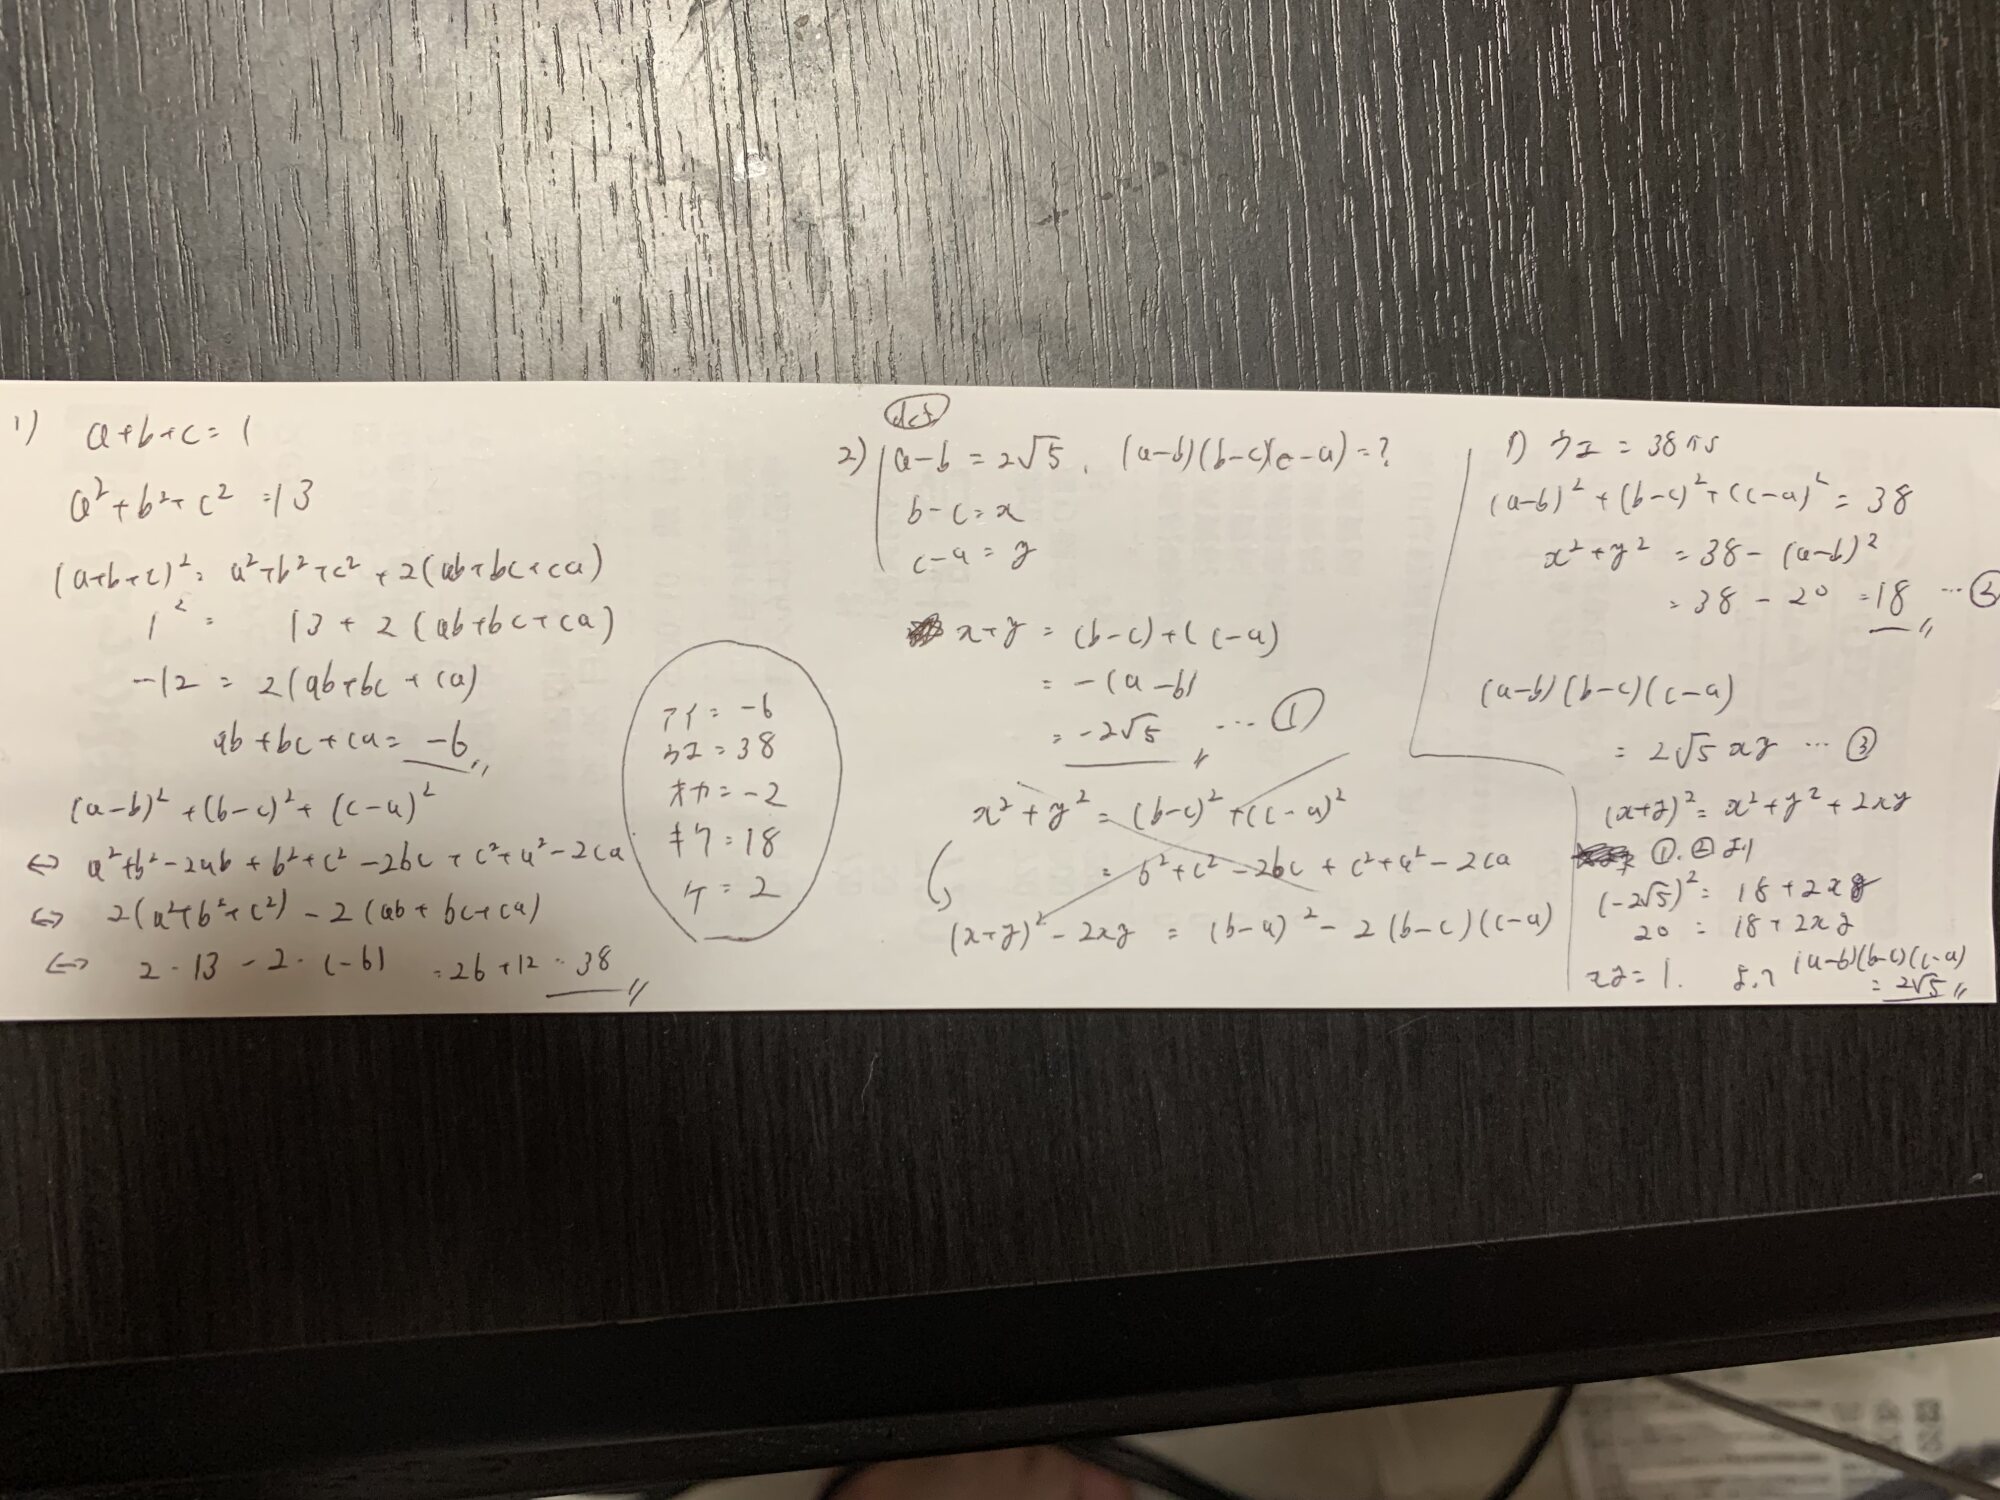 1) a+b+c=1
a²+b²+c²=13
(a+b+c)²= a²+b²+c²+2(ab+bc+ca)
1² = 13+2(ab+bc+ca)
-12 = 2(ab+bc+ca)
ab+bc+ca= -6
(a-b)²+(b-c)²+(c-a)²
⇔ a²+b²-2ab+b²+c²-2bc+c²+a²-2ca
⇔ 2(a²+b²+c²)-2(ab+bc+ca)
⇔ 2·13-2·(-6) =26+12=38
アイ=-6
ウエ=38
オカ=-2
キク=18
ケ=2
2) a-b=2√5, (a-b)(b-c)(c-a)=?
b-c=x
c-a=y
x+y = (b-c)+(c-a)
= -(a-b)
= -2√5 … ①
x²+y² = (b-c)²+(c-a)²
= b²+c²-2bc+c²+a²-2ca
(x+y)²-2xy = (b-a)²-2(b-c)(c-a)
1) ウエ=38から
(a-b)²+(b-c)²+(c-a)²=38
x²+y² =38-(a-b)²
=38-20 =18 …②
(a-b)(b-c)(c-a)
= 2√5xy …③
(x+y)²=x²+y²+2xy
①.②より
(-2√5)²= 18+2xy
20 = 18+2xy
xy=1. よって (a-b)(b-c)(c-a)
= 2√5